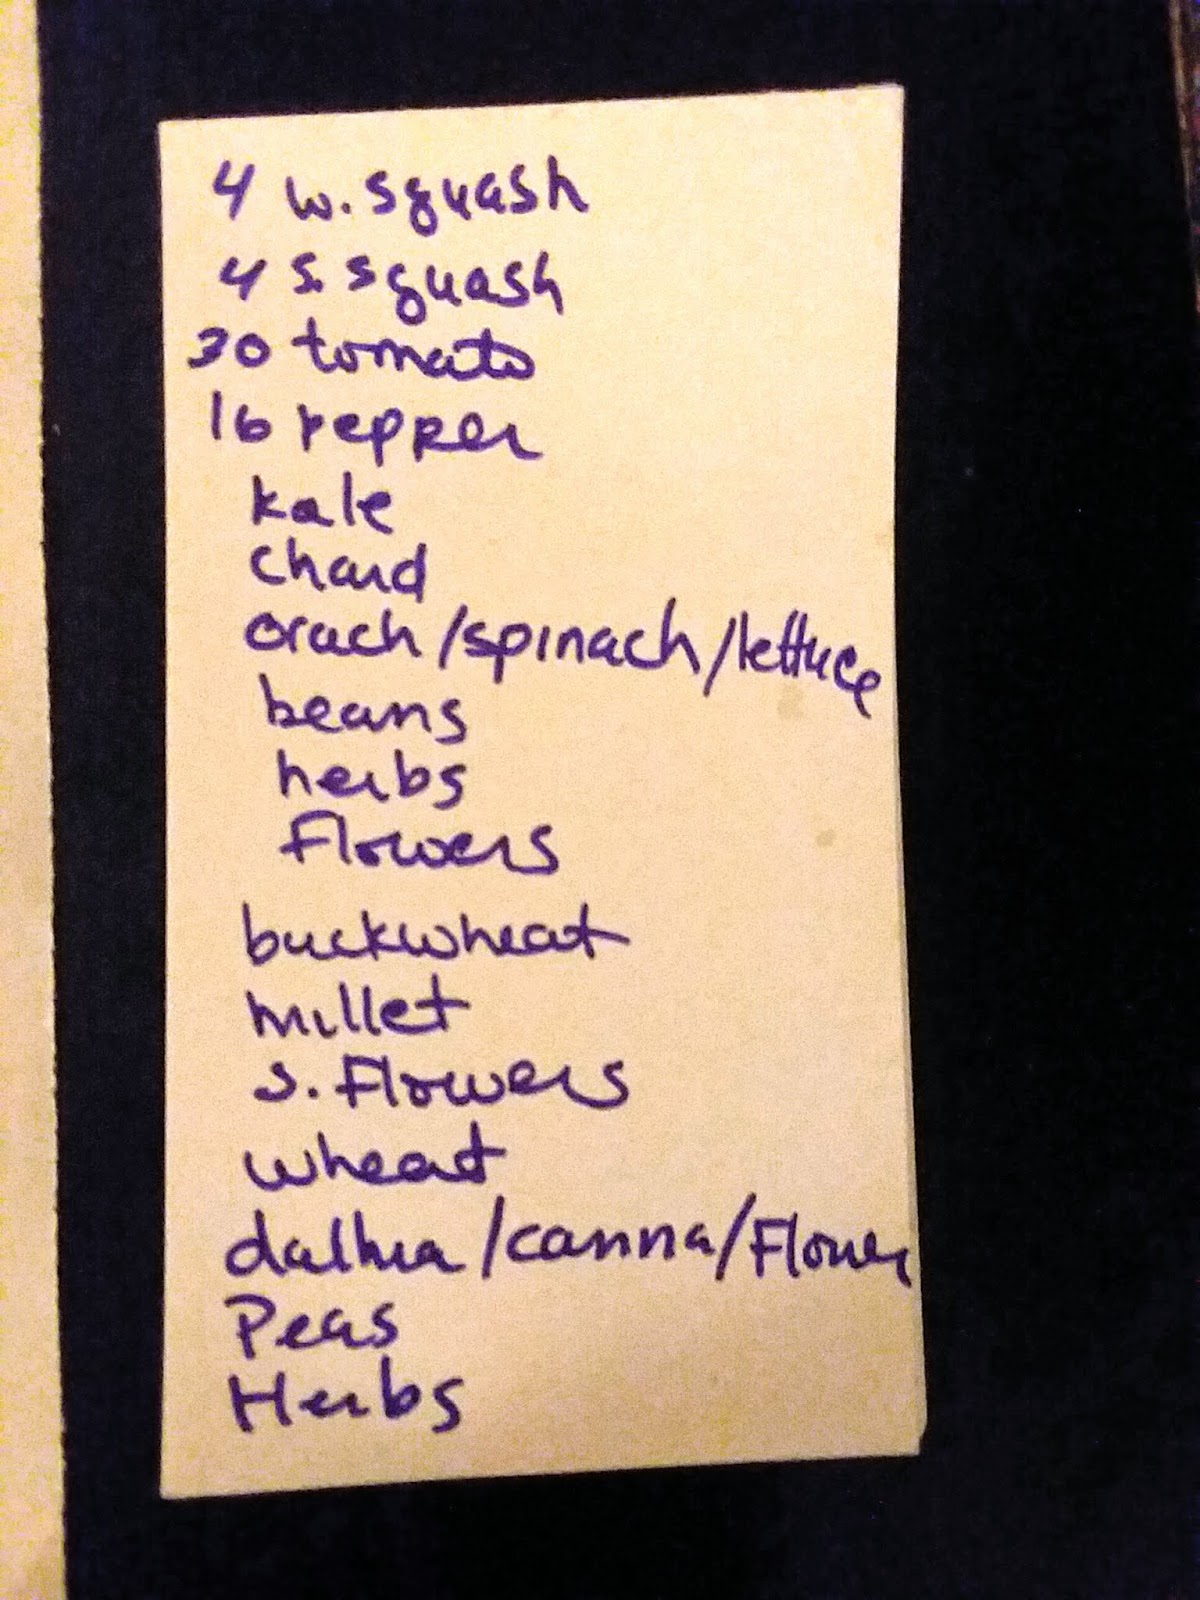 4 w. squash
4 s. squash
30 tomato
16 pepper
kale
chard
orach/spinach/lettuce
beans
herbs
Flowers
buckwheat
millet
s. Flowers
wheat
dalhia/canna/Flower
Peas
Herbs